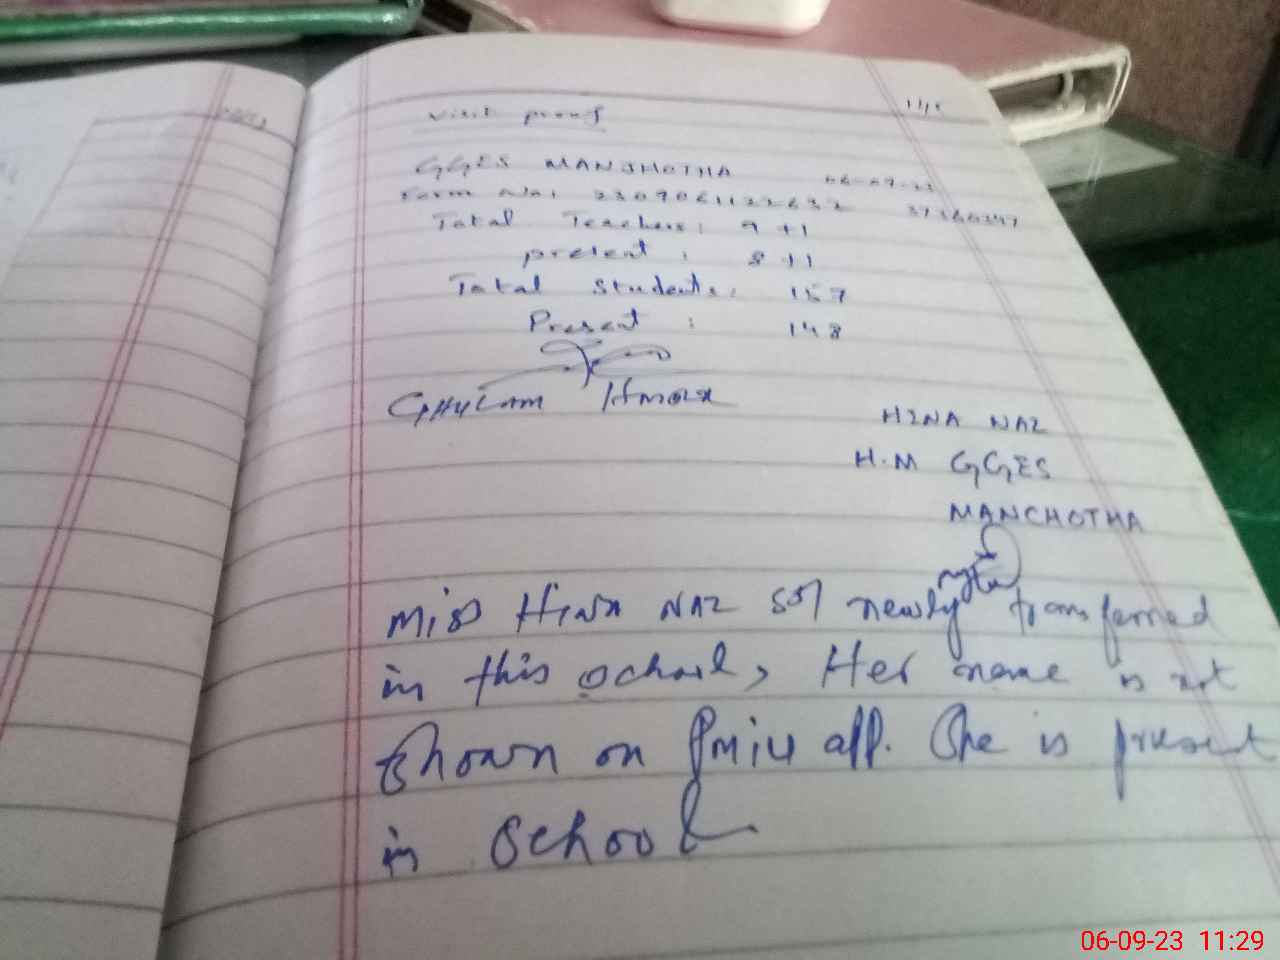 visit proof
GGES MANJHOTHA 06-09-23
Form No: 2309061122632
Total Teachers: 9+1
present: 8+1
Total Students: 157
Present: 148
GHULAM
HINA NAZ
H.M GGES
MANCHOTHA
Miss HINA NAZ newly transferred
in this school, Her name is not
Shown on PMIU app. She is present
in school
06-09-23 11:29